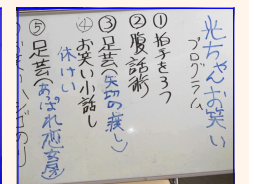 光ちゃんお笑い
プログラム
①拍手をろう
②腹話術
③足芸(矢切の渡し)
④お笑い小話し
休けい
⑤足芸(あっぱれ